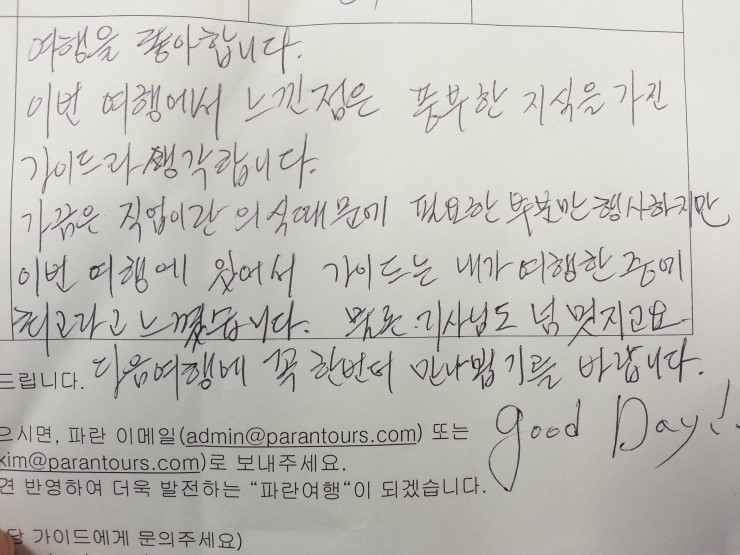 여행을 좋아합니다.
이번 여행에서 느낀점은 풍부한 지식을 가진
가이드라 생각합니다.
가끔은 직업이란 의식때문에 필요한 부분만 행사하지만
이번 여행에 있어서 가이드는 내가 여행한 중에
최고라고 느꼈습니다. 물론 기사님도 넘 멋지고요.
드립니다. 다음여행에 꼭 한번더 만나뵙기를 바랍니다.
good Day!!
으시면, 파란 이메일(admin@parantours.com) 또는
kim@parantours.com)로 보내주세요.
견 반영하여 더욱 발전하는 “파란여행“이 되겠습니다.
당 가이드에게 문의주세요)